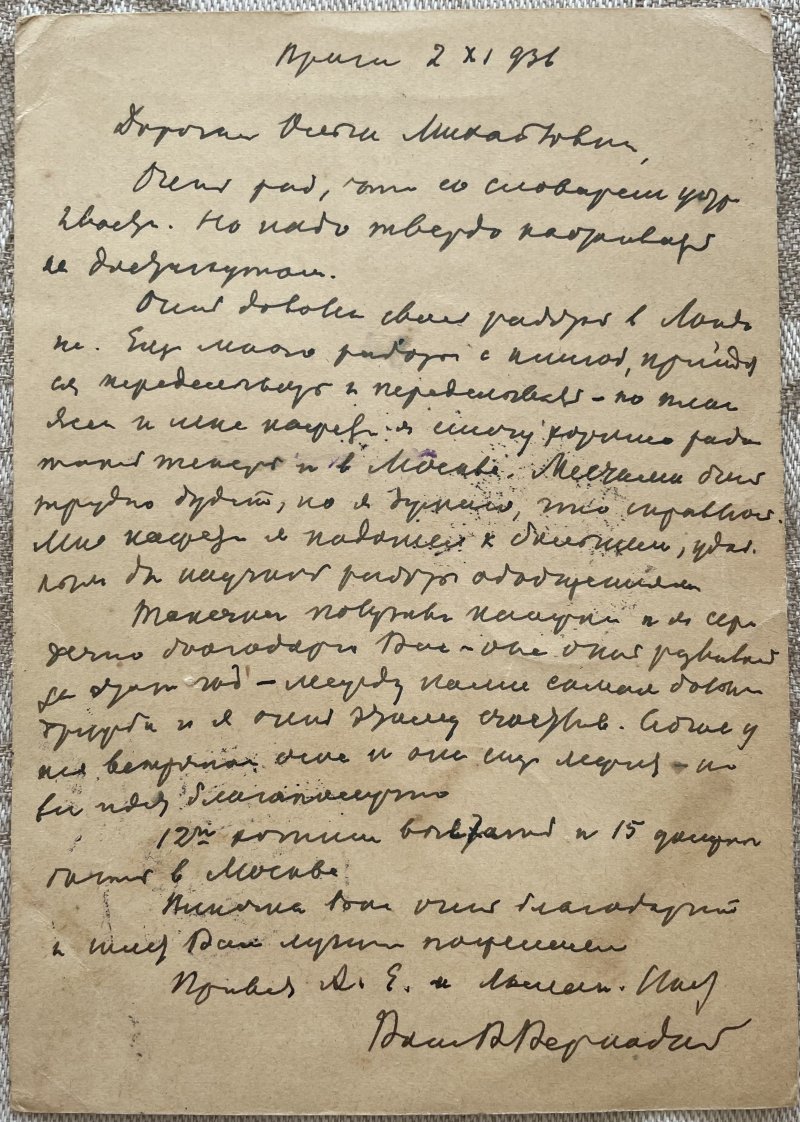 Прага 2 XI 936
Дорогая Ольга Михайловна,
Очень рад, что со словарем устра
ивается. Но надо твердо настаивать
на достигнутом.
Очень доволен своей работой в Лондо
не. Еще много работы с книгой, придет
ся переделывать и переделывать – но план
ясен и мне кажется я смогу хорошо рабо
тать теперь и в Москве. Местами очень
трудно будет, но я думаю, что справлюсь.
Мне кажется я подошел к большим,
для научной работы обобщениям
Танечка и я сер
дечно благодарим Вас – она очень развилась
за этот год – между нами самая большая
дружба и я очень этому счастлив. Сейчас у
нее ветряная оспа и она еще лежит – но
все идет благополучно
12го хотим выехать и 15 должны
быть в Москве
Ниночка Вас очень благодарит
и шлет Вам лучшие пожелания
Привет А. Е. и
Ваш В. Вернадский